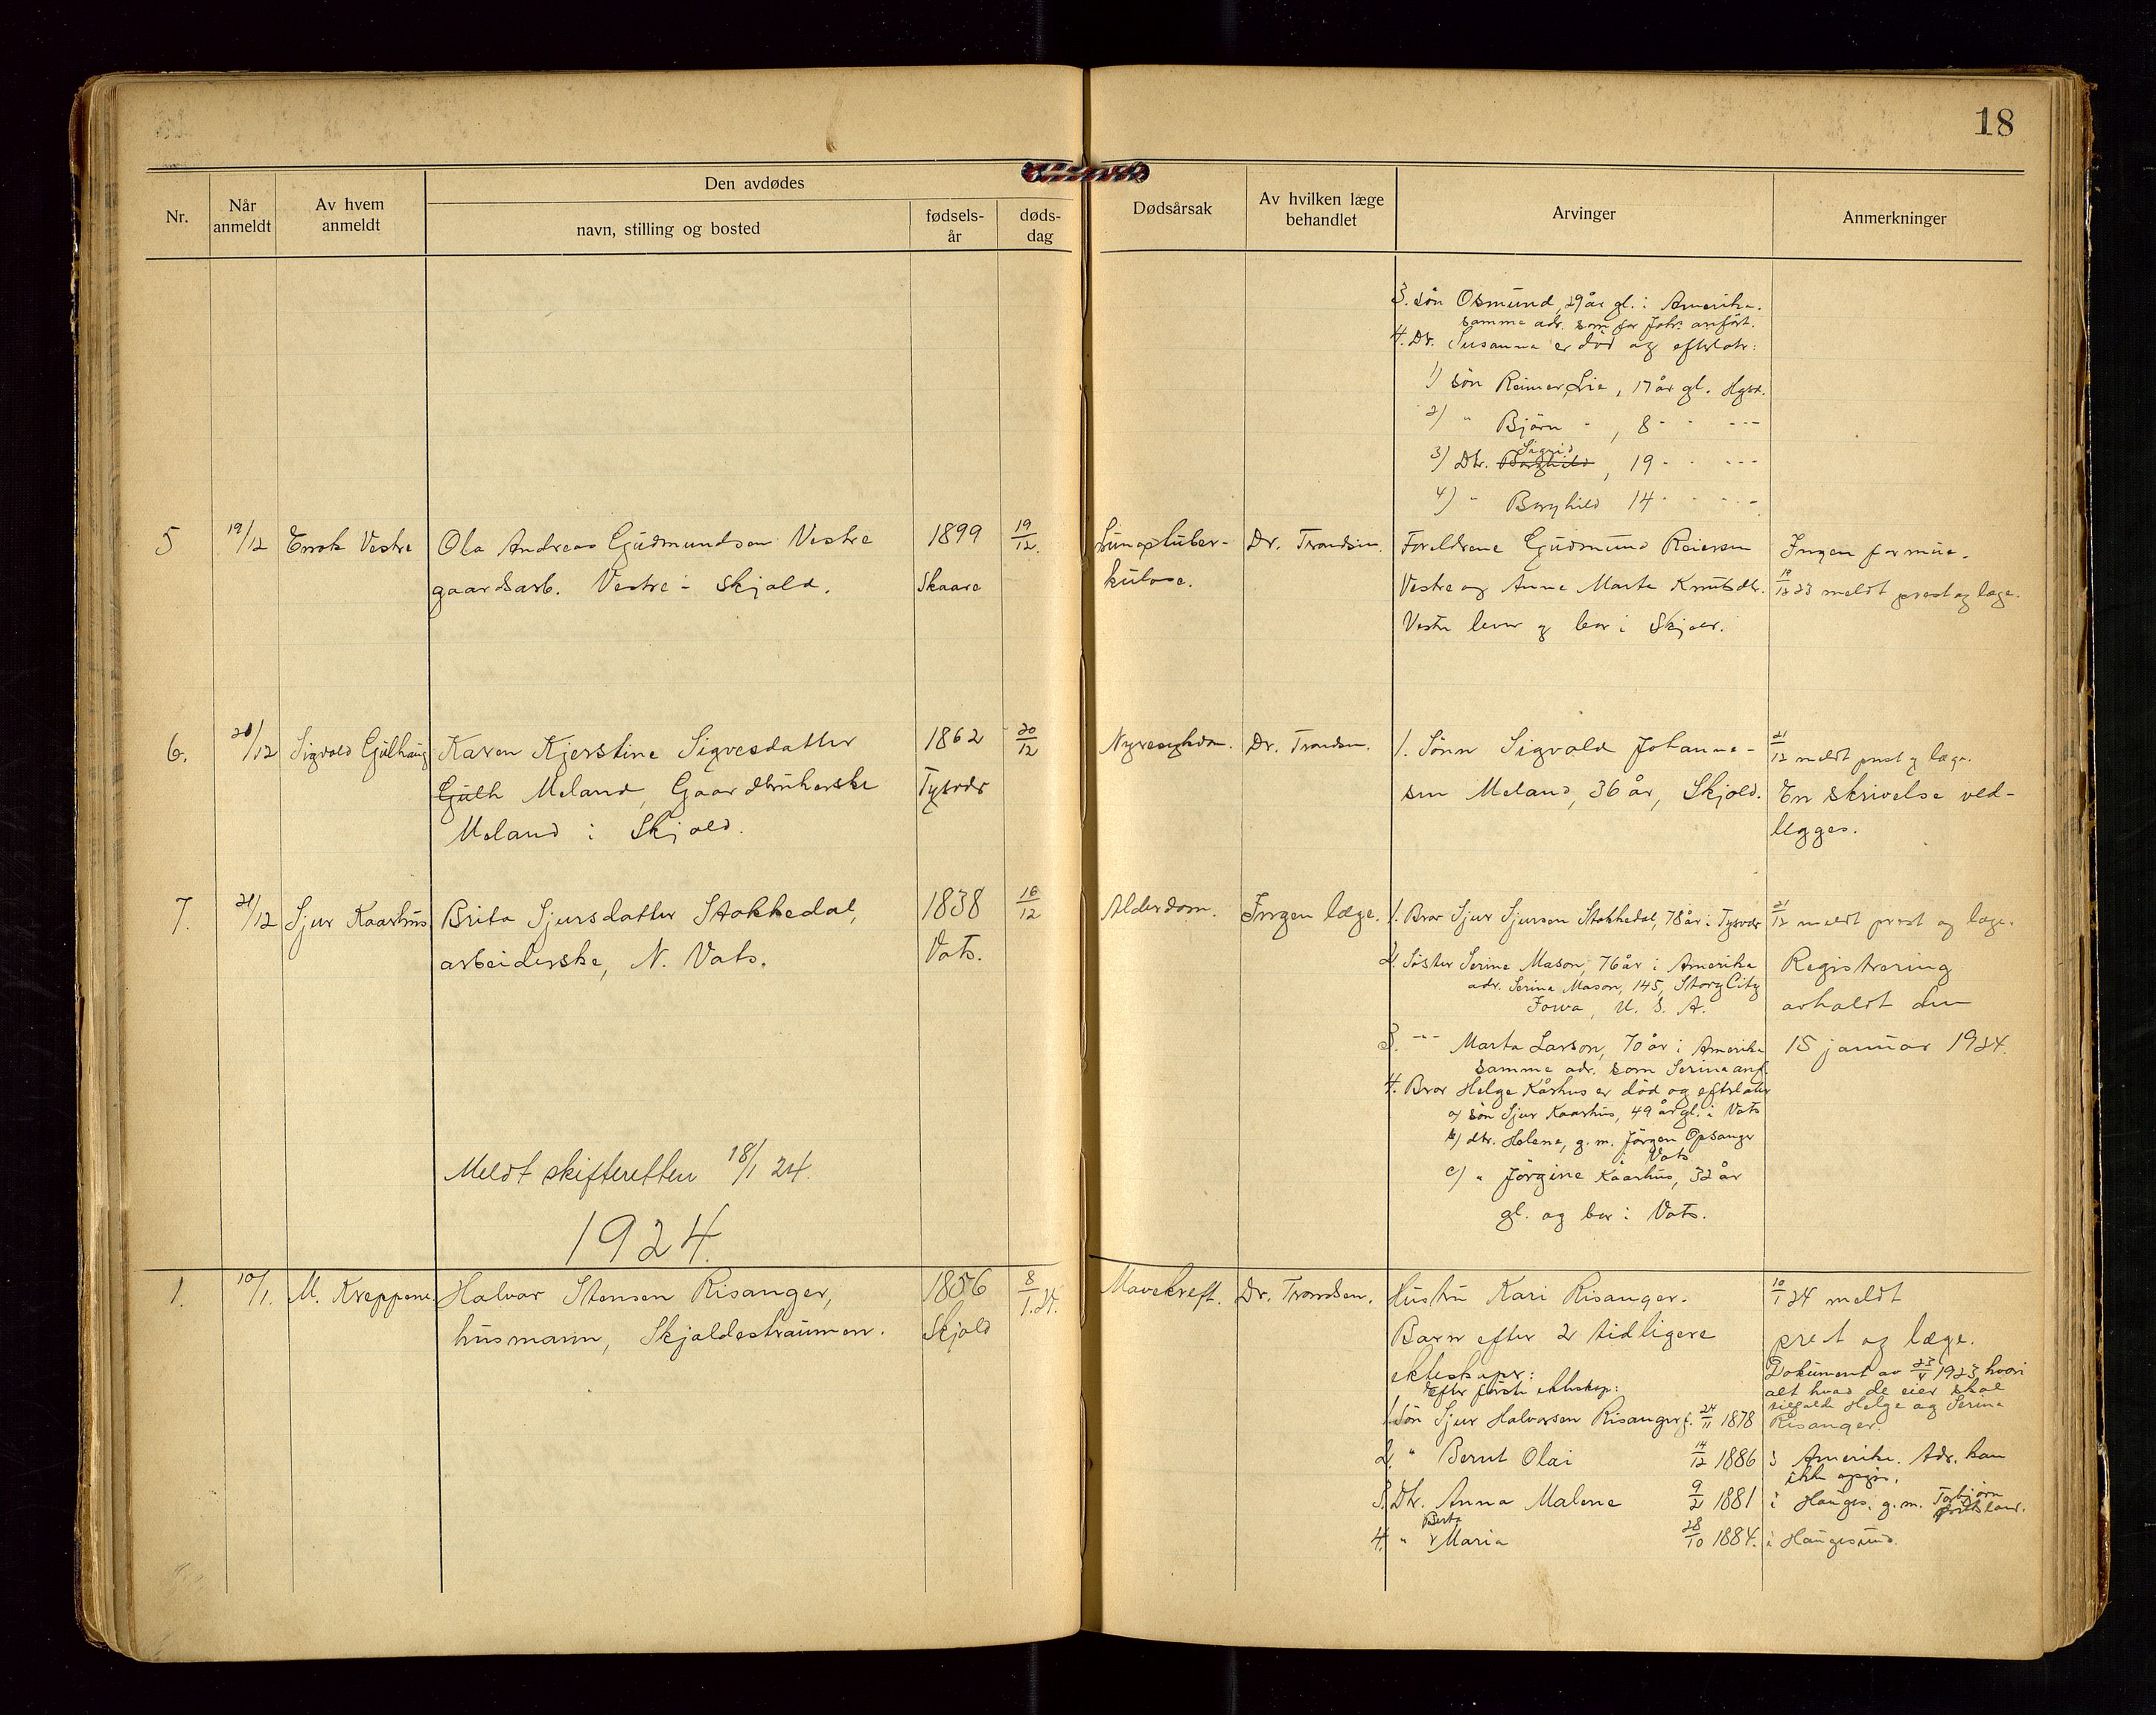 18
Nr.
Når anmeldt
Av hvem anmeldt
Den avdødes
navn, stilling og bosted
fødsels-år
døds-dag
Dødsårsak
Av hvilken læge behandlet
Arvinger
Anmerkninger
3. søn Osmund, 29 år gl. i Amerika.
samme adr. som for Johs. anført.
4. Dr. Susanna er död og efterlatr:
1) søn Reimer Lie, 17 år gl. Hgsd.
2) " Björn " , 8 " " ---
3) Dtr. Borghild Sigrid, 19 " " ---
4) " Borghild 14 " " ---
5 19/12 Enok Vestre Ola Andreas Gudmundsen Vestre 1899 19/12. Lungetuber- Dr. Trondsen. Foreldrene Gudmund Reiersen Ingen formue.
gaardsarb. Vestre - Skjold. Skaare kulose. Vestre og Anne Marta Knutsdtr. 19/12 23 meldt prest og læge.
Vestre lever og bor i Skjold.
6. 21/12 Sigvald Gulhaug Karen Kjerstine Sigvesdatter 1862 20/12 Nyresykdom. Dr. Trondsen. 1. Sönn Sigvald Johanne- 21/12 meldt prest og læge.
Gulh Meland, Gaardbrukerske Tysvær sen Meland, 36 år, Skjold. En skrivelse ved-
Meland i Skjold. legges.
7. 21/12 Sjur Kaarhus. Brita Sjursdatter Stokkedal, 1838 16/12 Alderdom. Ingen læge. 1. Bror Sjur Sjursen Stokkedal, 78 år i Tysvær 21/12 meldt prest og læge.
arbeiderske, N. Vats. Vats. 2. Söster Serine Mason, 76 år i Amerika Registrering
adr. Serina Mason, 145, Story City
Iowa, U. S. A. avholdt den
3. -"- Marta Larson, 70 år i Amerika 15 januar 1924.
samme adr. som Serina anf.
4. Bror Helge Kårhus er död og efterlater
a) sön Sjur Kaarhus, 49 år gl. i Vats
b) dtr. Helene, g. m. Jörgen Opsanger
i Vats
c) " Jörgine Kaarhus, 32 år
gl. og bor i Vats.
Meldt skifteretten 18/1 24.
1924.
1. 10/1. M. Kreppene. Halvor Stensen Risanger, 1856 8/1.24. Mavekreft. Dr. Trondsen. Hustru Kari Risanger. 10/1 24 meldt
husmann, Skjoldestraumen. Skjold Barn efter 2 tidligere prest og læge.
ekteskaper: Dokument av 23/5 1923, hvori
Efter første ekteskap: alt hvad de eier skal
tilfalde Helge og Serina
1. Sön Sjur Halvorsen Risanger f. 24/11 1878 Risanger.
2. " Bernt Olai 14/12 1886 i Amerika. Adr. kan
ikke opgis.
3. Dtr. Anna Malene 9/2 1881 i Hauges. g. m. Torbjörn
4. " Berta Maria 28/10 1884. i Haugesund.